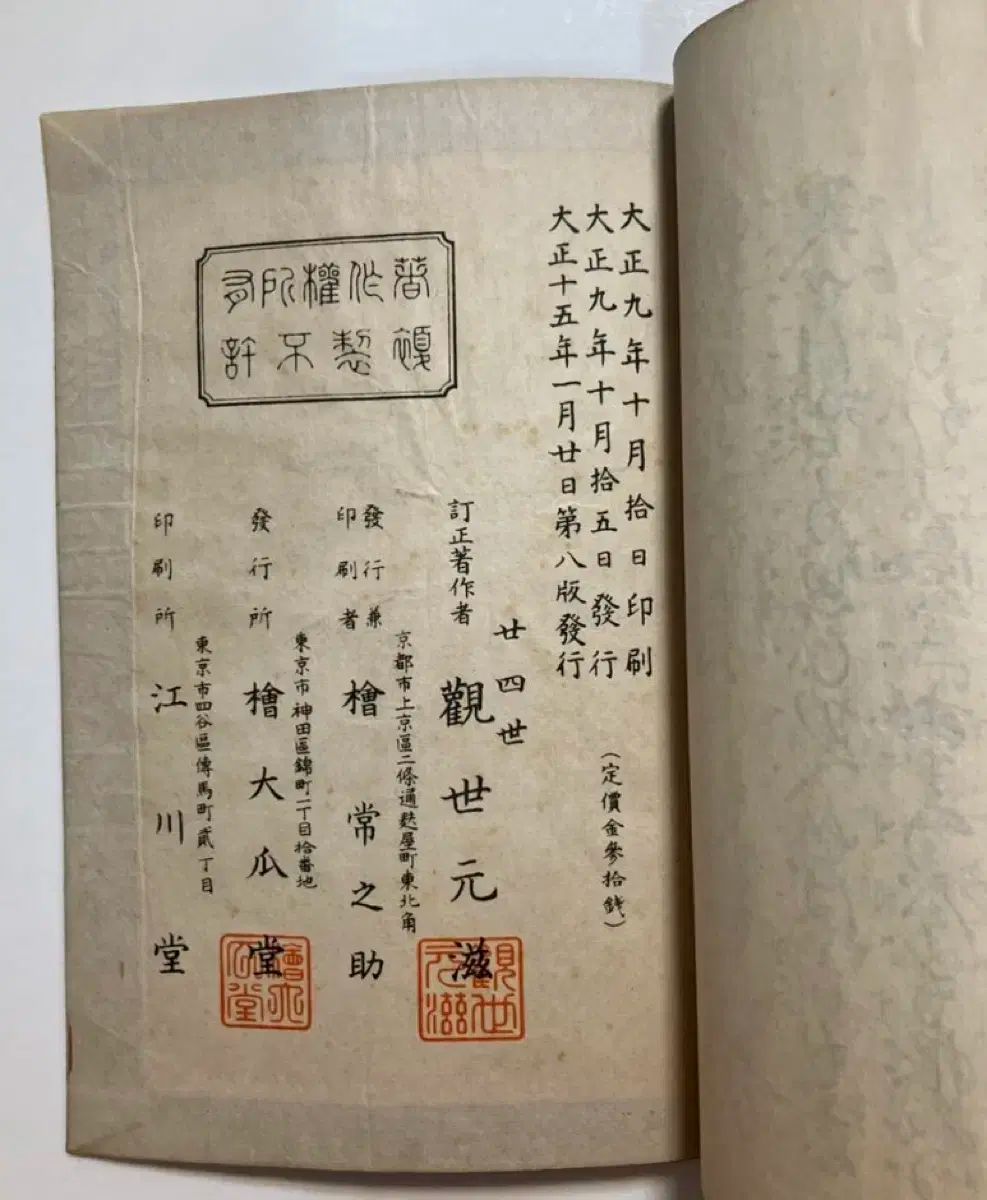 大正九年十月拾日印刷
大正九年十月拾五日發行
大正十五年一月廿日第八版發行
(定價金參拾錢)
廿四世
訂正著作者 觀世元滋
京都市上京區二條通麩屋町東北角
發行兼
印刷者 檜常之助
東京市神田區錦町一丁目拾番地
發行所 檜大瓜堂
東京市四谷區傳馬町貳丁目
印刷所 江川堂
著作權所有
不許複製
觀世
元滋
檜大
瓜堂